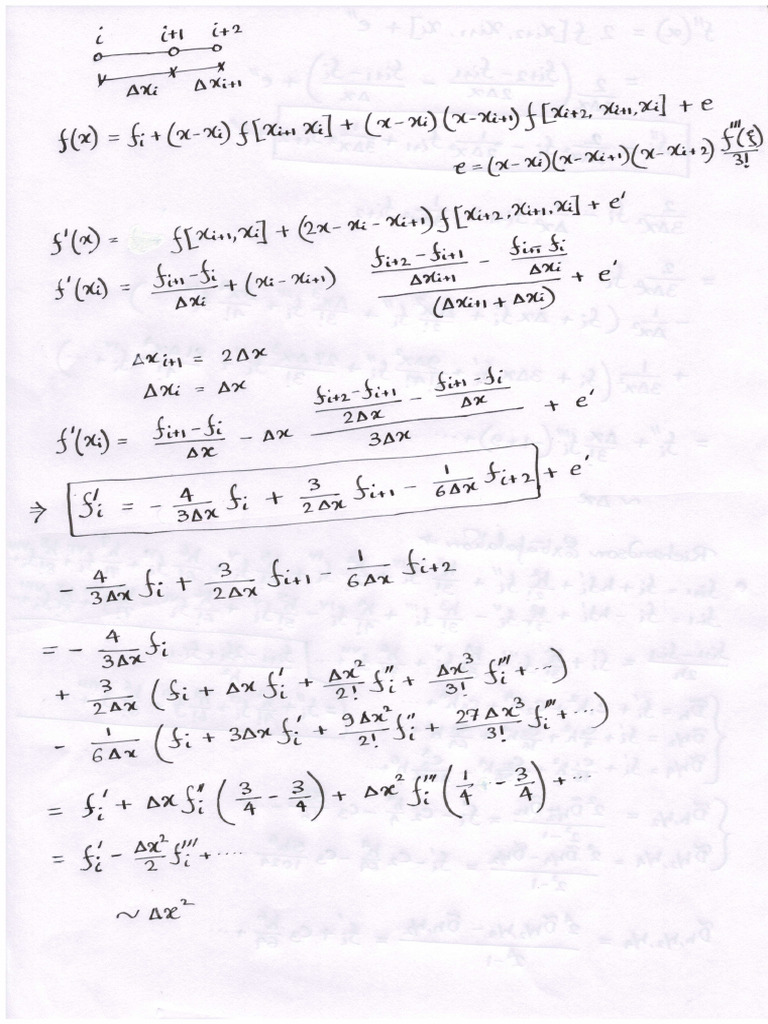 i i+1 i+2
Δxi Δxi+1
f(x) = fi + (x-xi) f[xi+1 xi] + (x-xi)(x-xi+1) f[xi+2, xi+1, xi] + e
e = (x-xi)(x-xi+1)(x-xi+2) f'''(ξ)/3!
f'(x) = f[xi+1, xi] + (2x - xi - xi+1) f[xi+2, xi+1, xi] + e'
f'(xi) = (fi+1 - fi)/Δxi + (xi - xi+1) ((fi+2 - fi+1)/Δxi+1 - (fi+1 - fi)/Δxi)/(Δxi+1 + Δxi) + e'
Δxi+1 = 2Δx
Δxi = Δx
f'(xi) = (fi+1 - fi)/Δx - Δx ((fi+2 - fi+1)/2Δx - (fi+1 - fi)/Δx)/3Δx + e'
⇒ fi' = - 4/3Δx fi + 3/2Δx fi+1 - 1/6Δx fi+2 + e'
- 4/3Δx fi + 3/2Δx fi+1 - 1/6Δx fi+2
= - 4/3Δx fi
+ 3/2Δx (fi + Δx fi' + Δx²/2! fi'' + Δx³/3! fi''' + ...)
- 1/6Δx (fi + 3Δx fi' + 9Δx²/2! fi'' + 27Δx³/3! fi''' + ...)
= fi' + Δx fi'' (3/4 - 3/4) + Δx² fi''' (1/4 - 3/4) + ...
= fi' - Δx²/2 fi''' + ....
~ Δx²